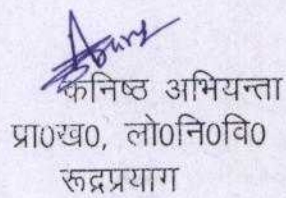 कनिष्ठ अभियन्ता
प्रा०ख०, लो०नि०वि०
रूद्रप्रयाग